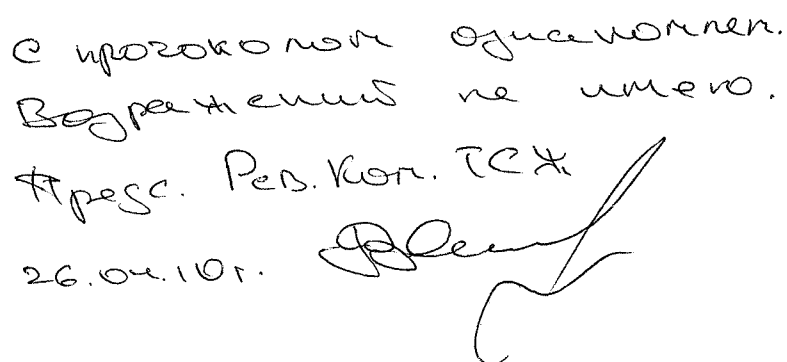 С протоколом ознакомлен.
Возражений не имею.
Предс. Рев. Ком. ТСЖ
26.04.10г.